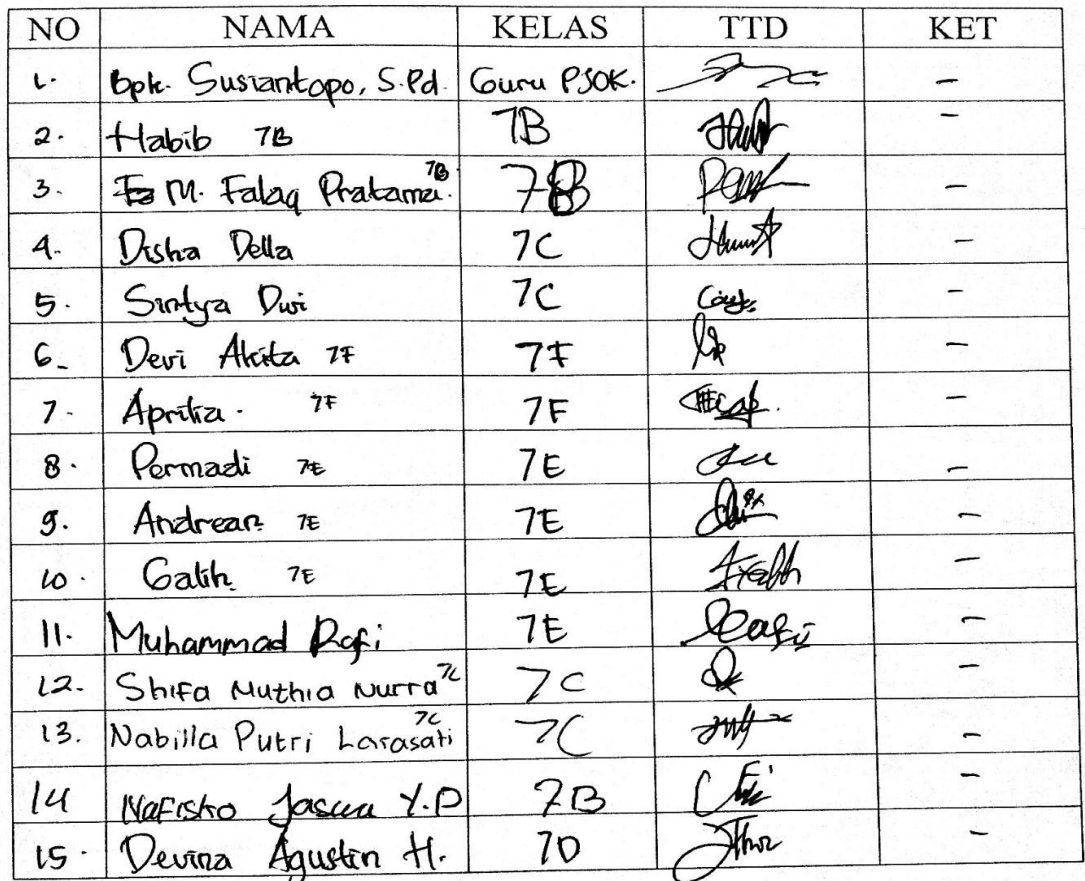 NO NAMA KELAS TTD KET
1. Bpk. Susiantopo, S.Pd. Guru PJOK. -
2. Habib 7B 7B -
3. M. Falaq Pratama. 7B 7B -
4. Disha Della 7C -
5. Sintya Dwi 7C -
6. Devi Akita 7F 7F -
7. Aprilia. 7F 7F -
8. Permadi 7E 7E -
9. Andrean 7E 7E -
10. Galih 7E 7E -
11. Muhammad Rafi 7E -
12. Shifa Muthia Nurra 7C 7C -
13. Nabilla Putri Larasati 7C 7C -
14 Y.P 7B -
15. Devina Agustin H. 7D -